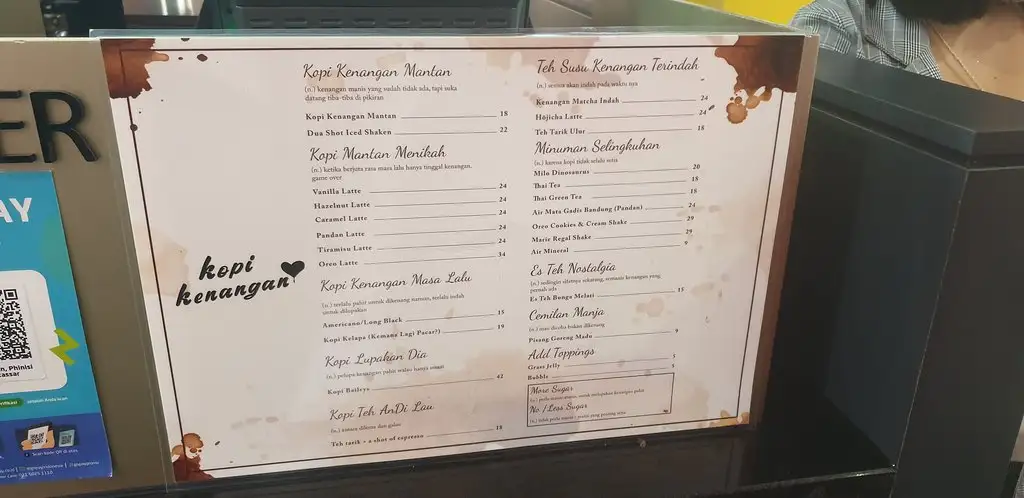 ER
AY
n, Phinisi
assar
kopi
kenangan
Kopi Kenangan Mantan
(n.) kenangan manis yang sudah tidak ada, tapi suka
datang tiba-tiba di pikiran
Kopi Kenangan Mantan 18
Dua Shot Iced Shaken 22
Kopi Mantan Menikah
(n.) ketika berjuta rasa masa lalu hanya tinggal kenangan.
game over
Vanilla Latte 24
Hazelnut Latte 24
Caramel Latte 24
Pandan Latte 24
Tiramisu Latte 24
Oreo Latte 34
Kopi Kenangan Masa Lalu
(n.) terlalu pahit untuk dikenang namun, terlalu indah
untuk dilupakan
Americano/Long Black 15
Kopi Kelapa (Kemana Lagi Pacar?) 19
Kopi Lupakan Dia
(n.) pelupa kenangan pahit walau hanya sesaat
Kopi Baileys 42
Kopi Teh AnDi Lau
(n.) antara dilema dan galau
Teh tarik + a shot of espresso 18
Teh Susu Kenangan Terindah
(n.) semua akan indah pada waktu nya
Kenangan Matcha Indah 24
Hojicha Latte 24
Teh Tarik Ulur 18
Minuman Selingkuhan
(n.) karena kopi tidak selalu setia
Milo Dinosaurus 20
Thai Tea 18
Thai Green Tea 18
Air Mata Gadis Bandung (Pandan) 24
Oreo Cookies & Cream Shake 29
Marie Regal Shake 29
Air Mineral 9
Es Teh Nostalgia
(n.) sedingin sifatnya sekarang, semanis kenangan yang
pernah ada
Es Teh Bunga Melati 15
Cemilan Manja
(n.) mau dicoba bukan dikenang
Pisang Goreng Madu 9
Add Toppings
Grass Jelly 5
Bubble 5
More Sugar
No / Less Sugar